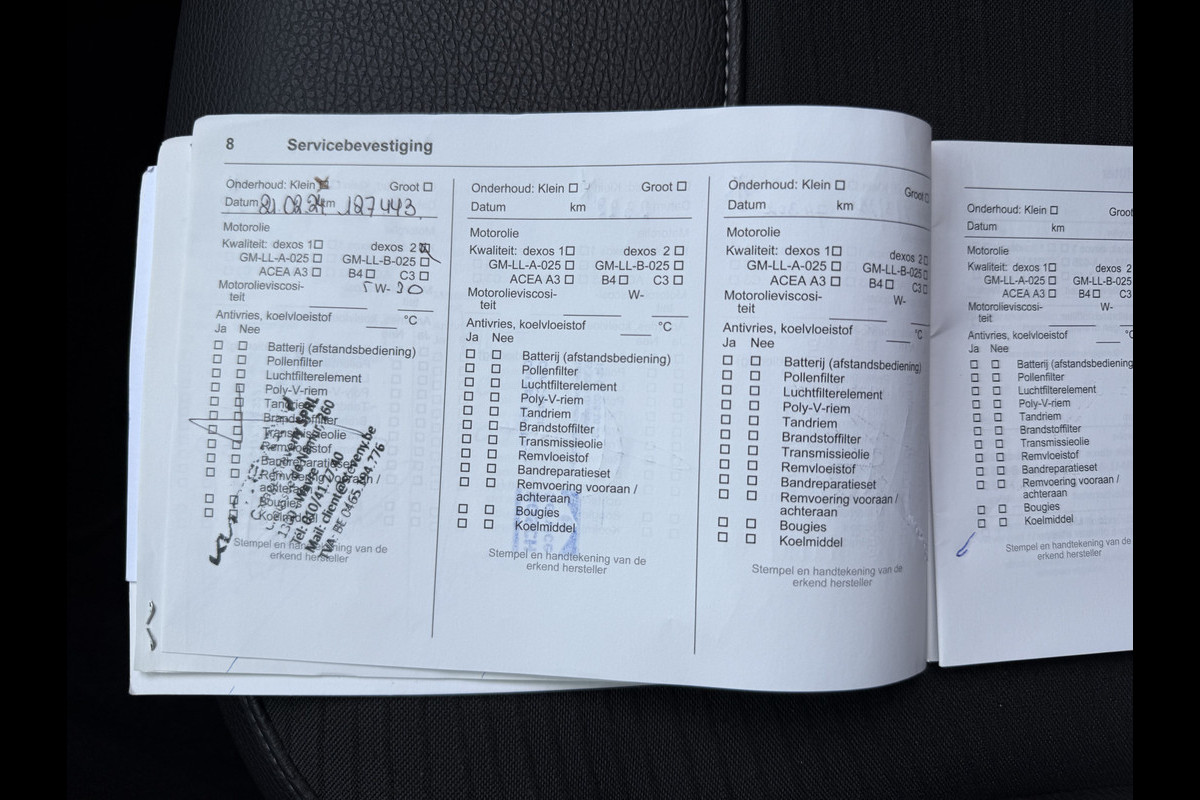 8 Servicebevestiging
Onderhoud: Klein Groot
Datum 21.02.24 km 127443
Motorolie
Kwaliteit: dexos 1 dexos 2
GM-LL-A-025 GM-LL-B-025
ACEA A3 B4 C3
Motorolieviscosi-
teit 5 W- 30
Antivries, koelvloeistof °C
Ja Nee
Batterij (afstandsbediening)
Pollenfilter
Luchtfilterelement
Poly-V-riem
Tandriem
Brandstoffilter
Transmissieolie
Remvloeistof
Bandreparatieset
Remvoering vooraan /
achteraan
Bougies
Koelmiddel
SPRL
de Namur
Wavre
Tél: 010/41
Mail: client@
TVA: BE
Stempel en handtekening van de
erkend hersteller
Onderhoud: Klein Groot
Datum km
Motorolie
Kwaliteit: dexos 1 dexos 2
GM-LL-A-025 GM-LL-B-025
ACEA A3 B4 C3
Motorolieviscosi-
teit W-
Antivries, koelvloeistof °C
Ja Nee
Batterij (afstandsbediening)
Pollenfilter
Luchtfilterelement
Poly-V-riem
Tandriem
Brandstoffilter
Transmissieolie
Remvloeistof
Bandreparatieset
Remvoering vooraan /
achteraan
Bougies
Koelmiddel
Stempel en handtekening van de
erkend hersteller
Onderhoud: Klein Groot
Datum km
Motorolie
Kwaliteit: dexos 1 dexos 2
GM-LL-A-025 GM-LL-B-025
ACEA A3 B4 C3
Motorolieviscosi-
teit W-
Antivries, koelvloeistof °C
Ja Nee
Batterij (afstandsbediening)
Pollenfilter
Luchtfilterelement
Poly-V-riem
Tandriem
Brandstoffilter
Transmissieolie
Remvloeistof
Bandreparatieset
Remvoering vooraan /
achteraan
Bougies
Koelmiddel
Stempel en handtekening van de
erkend hersteller
Onderhoud: Klein Groot
Datum km
Motorolie
Kwaliteit: dexos 1 dexos 2
GM-LL-A-025 GM-LL-B-025
ACEA A3 B4 C3
Motorolieviscosi-
teit W-
Antivries, koelvloeistof °C
Ja Nee
Batterij (afstandsbediening)
Pollenfilter
Luchtfilterelement
Poly-V-riem
Tandriem
Brandstoffilter
Transmissieolie
Remvloeistof
Bandreparatieset
Remvoering vooraan /
achteraan
Bougies
Koelmiddel
Stempel en handtekening van de
erkend hersteller